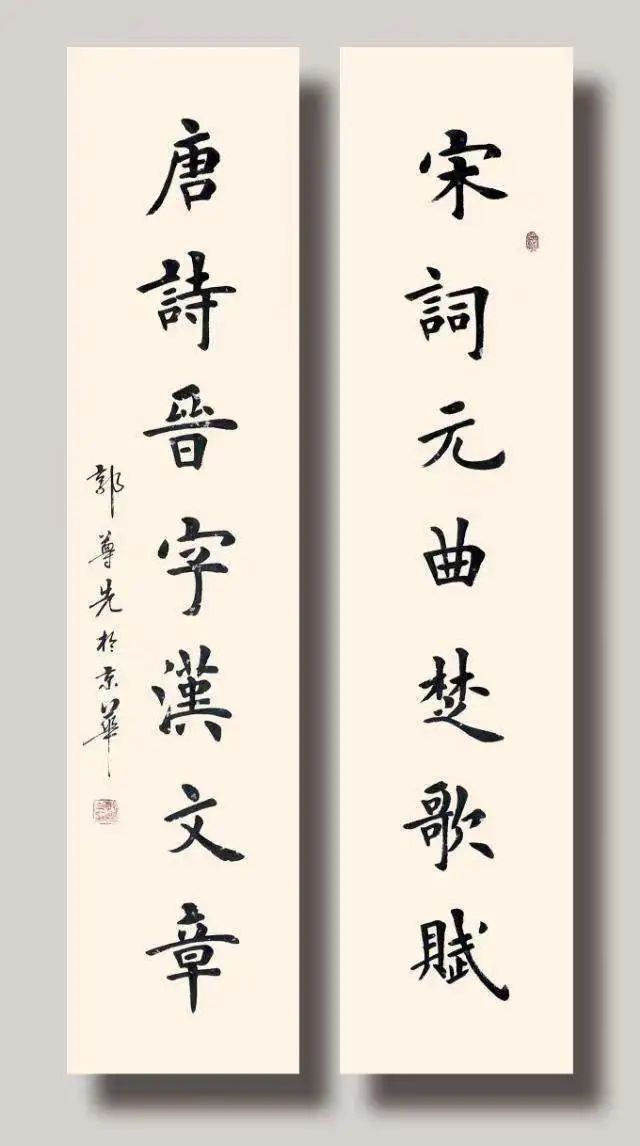 宋詞元曲楚歌賦
唐詩晉字漢文章
郭尊先於京華